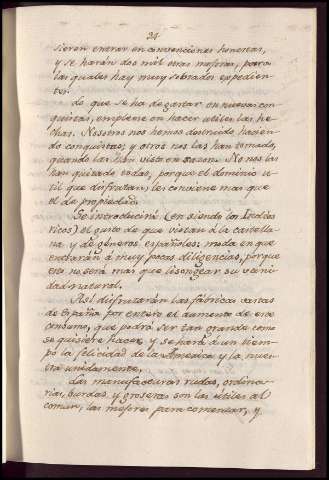 24
sieren entrar en convenciones honestas,
y se harán dos mil otras mejoras, para
las quales hay muy sobrados expedien-
tes.
Lo que se ha de gastar en nuevas con-
quistas, empleese en hacer utiles las he-
chas. Nosotros nos hemos destruido hacien-
do conquistas; y otros nos las han tomado,
quando las han visto en sazon. No nos las
han quitado todas, porque el dominio u-
til que disfrutan, les conviene mas que
el de propiedad.
Se introducirá (en siendo los Indios
ricos) el gusto de que vistan á la castella-
na y de generos españoles: moda en que
entrarán á muy pocas diligencias, porque
esto no será mas que lisongear su vani-
dad natural.
Asi disfrutarán las fábricas vastas
de España por entero el aumento de este
consumo, que podrá ser tan grande como
se quisiere hacer, y se hará á un tiem-
po la felicidad de la America y la nues-
tra unidamente.
Las manufacturas rudas, ordina-
rias, burdas y groseras son las utiles al
comun, las mejores para comenzar, y